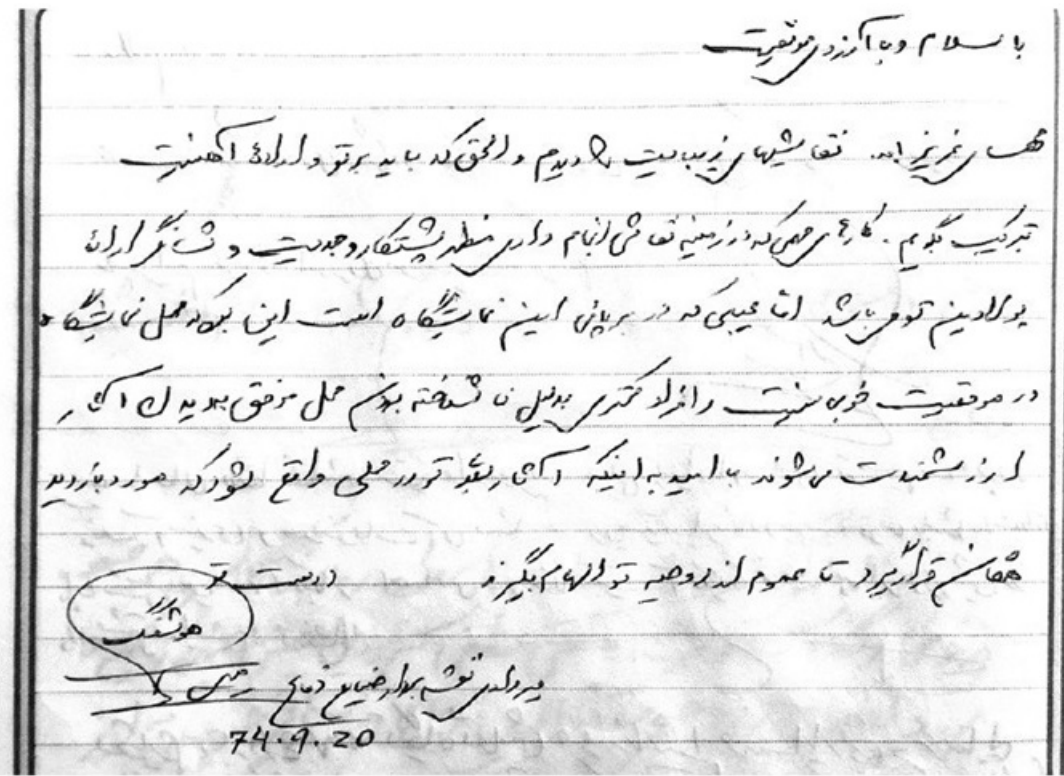 با سلام و با آرزوی موفقیت
عزیزم. نقاشیهای زیبایت را دیدم و الحق که باید بر تو و ارادهٔ آهنینت
تبریک بگویم. کارهای مهمی که در زمینه نقاشی انجام دادی مظهر پشتکار و جدیت و نشانگر ارادهٔ
پولادین تو می باشد اما عیبی که در برپائی این نمایشگاه است این بود که محل نمایشگاه
در موقعیت خوبی نیست و افراد کمتری بدلیل نا شناخته بودن محل موفق بدیدن آثار
ارزشمندت می شوند با امید به اینکه آثار تو در محلی واقع شود که مورد بازدید
همگان قرار گیرد تا عموم از روحیه تو الهام بگیرند دوست تو
هوشنگ
نقشه بردار صنایع دفاع
74.9.20